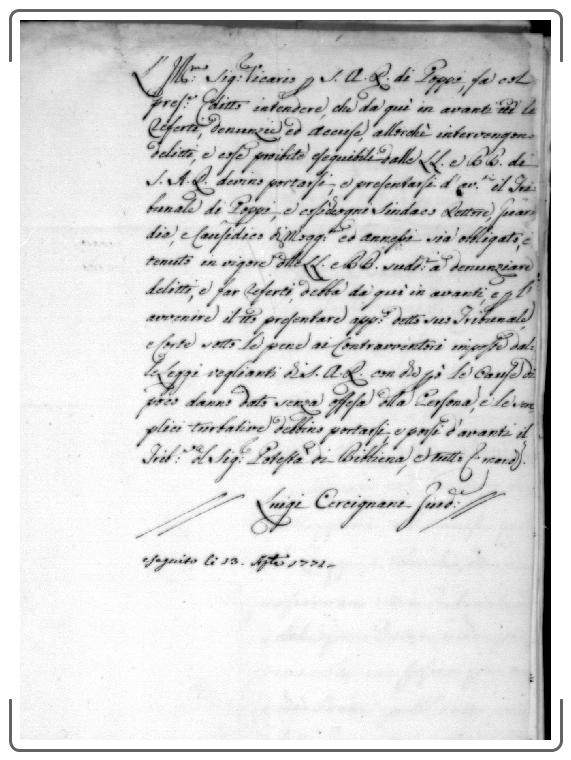 L'Ill.mo Sig.r Vicario p S. A. R. di Poppi, fa col
pres.e ditto intendere, che da quì in avanti tt.i le
Referti, denunzie ed accuse, allorchè intervengono
delitti, e cose proibite eseguibili dalle LL. e BB. di
S. A. R. devino portarsi, e presentarsi d'av.ti il Tri=
bunale di Poppi, e ogni Sindaco Rettore, Guar
dia, e Causidico di Mogg.a ed annessi sia obbligato, e
tenuto in vigore dlle LL. e BB. sudd.e a denunziare
delitti, e far referti, debba da quì in avanti, e p l'
avvenire il tto presentare app.o detto suo Tribunale,
e sotto le pene ai Contravventori imposte dal=
le Leggi veglianti di S. A. R. con che però le Cause di
poco danno dato senza offesa dlla Persona, e le sem
plici turbative debbino portarsi, e porsi d'avanti il
Trib.le del Sig.r Potestà di Bibbiena, e tutto
Luigi Cercignani
eseguito li 13. Agto 1771.